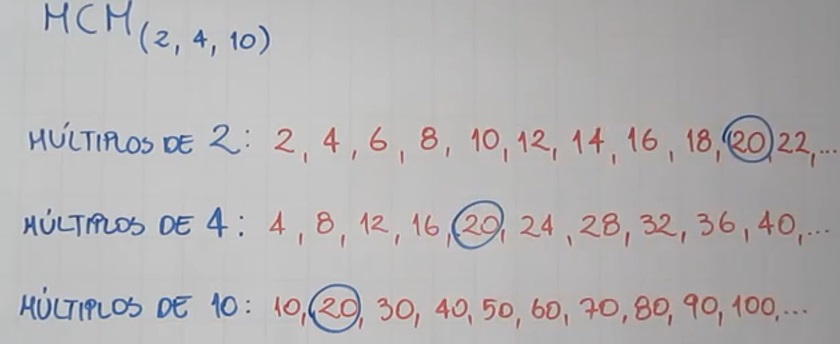 MCM(2, 4, 10)
MÚLTIPLOS DE 2: 2, 4, 6, 8, 10, 12, 14, 16, 18, 20, 22, ...
MÚLTIPLOS DE 4: 4, 8, 12, 16, 20, 24, 28, 32, 36, 40, ...
MÚLTIPLOS DE 10: 10, 20, 30, 40, 50, 60, 70, 80, 90, 100, ...